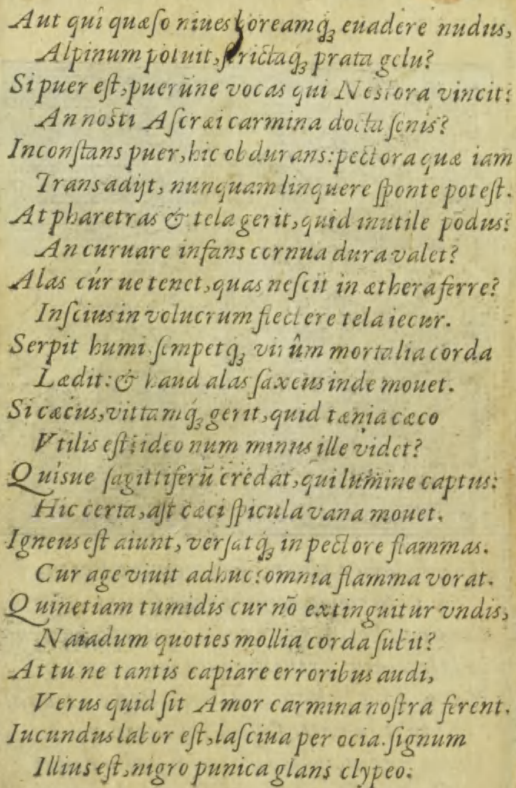 Aut qui quæso niues boreamq́ꝫ euadere nudus,
Alpinum potuit, strictaq́ꝫ prata gelu?
Si puer est, puerūne vocas qui Nestora vincit?
An nosti Ascræi carmina docta senis?
Inconstans puer, hic obdurans: pectora quæ iam
Transadijt, nunquam linquere sponte potest.
At pharetras & tela gerit, quid inutile põdus?
An curuare infans cornua dura valet?
Alas cúr ue tenet, quas nescit in æthera ferre?
Inscius in volucrum flectere tela iecur.
Serpit humi semperq́ꝫ virûm mortalia corda
Lædit: & haud alas saxeus inde mouet.
Si cæcus, vittamq́ꝫ gerit, quid tænia cæco
Vtilis est? ideo num minus ille videt?
Quisue sagittiferū credat, qui lumine captus?
Hic certa, ast cæci spicula vana mouet.
Igneus est aiunt, versatq́ꝫ in pectore flammas.
Cur age viuit adhuc? omnia flamma vorat.
Quinetiam tumidis cur nō extinguitur vndis,
Naiadum quoties mollia corda subit?
At tu ne tantis capiare erroribus audi,
Verus quid sit Amor carmina nostra ferent.
Iucundus labor est, lasciua per ocia. signum
Illius est, nigro punica glans clypeo.